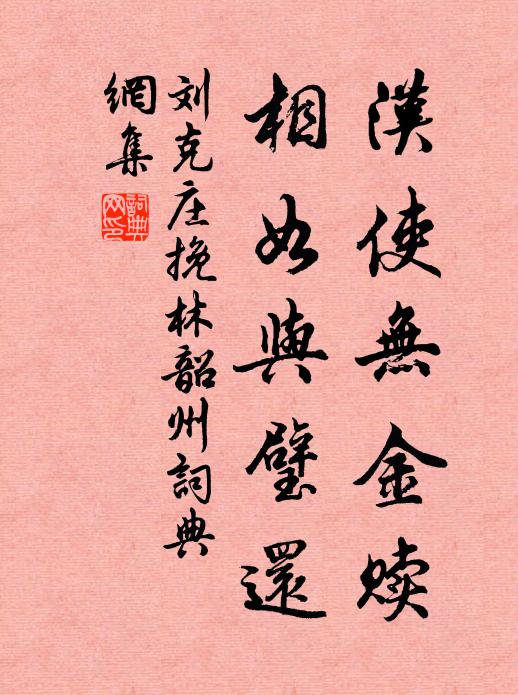 漢使無金赎
相如與璧還
刘克庄挽林韶州詞典
網集
詞典网印